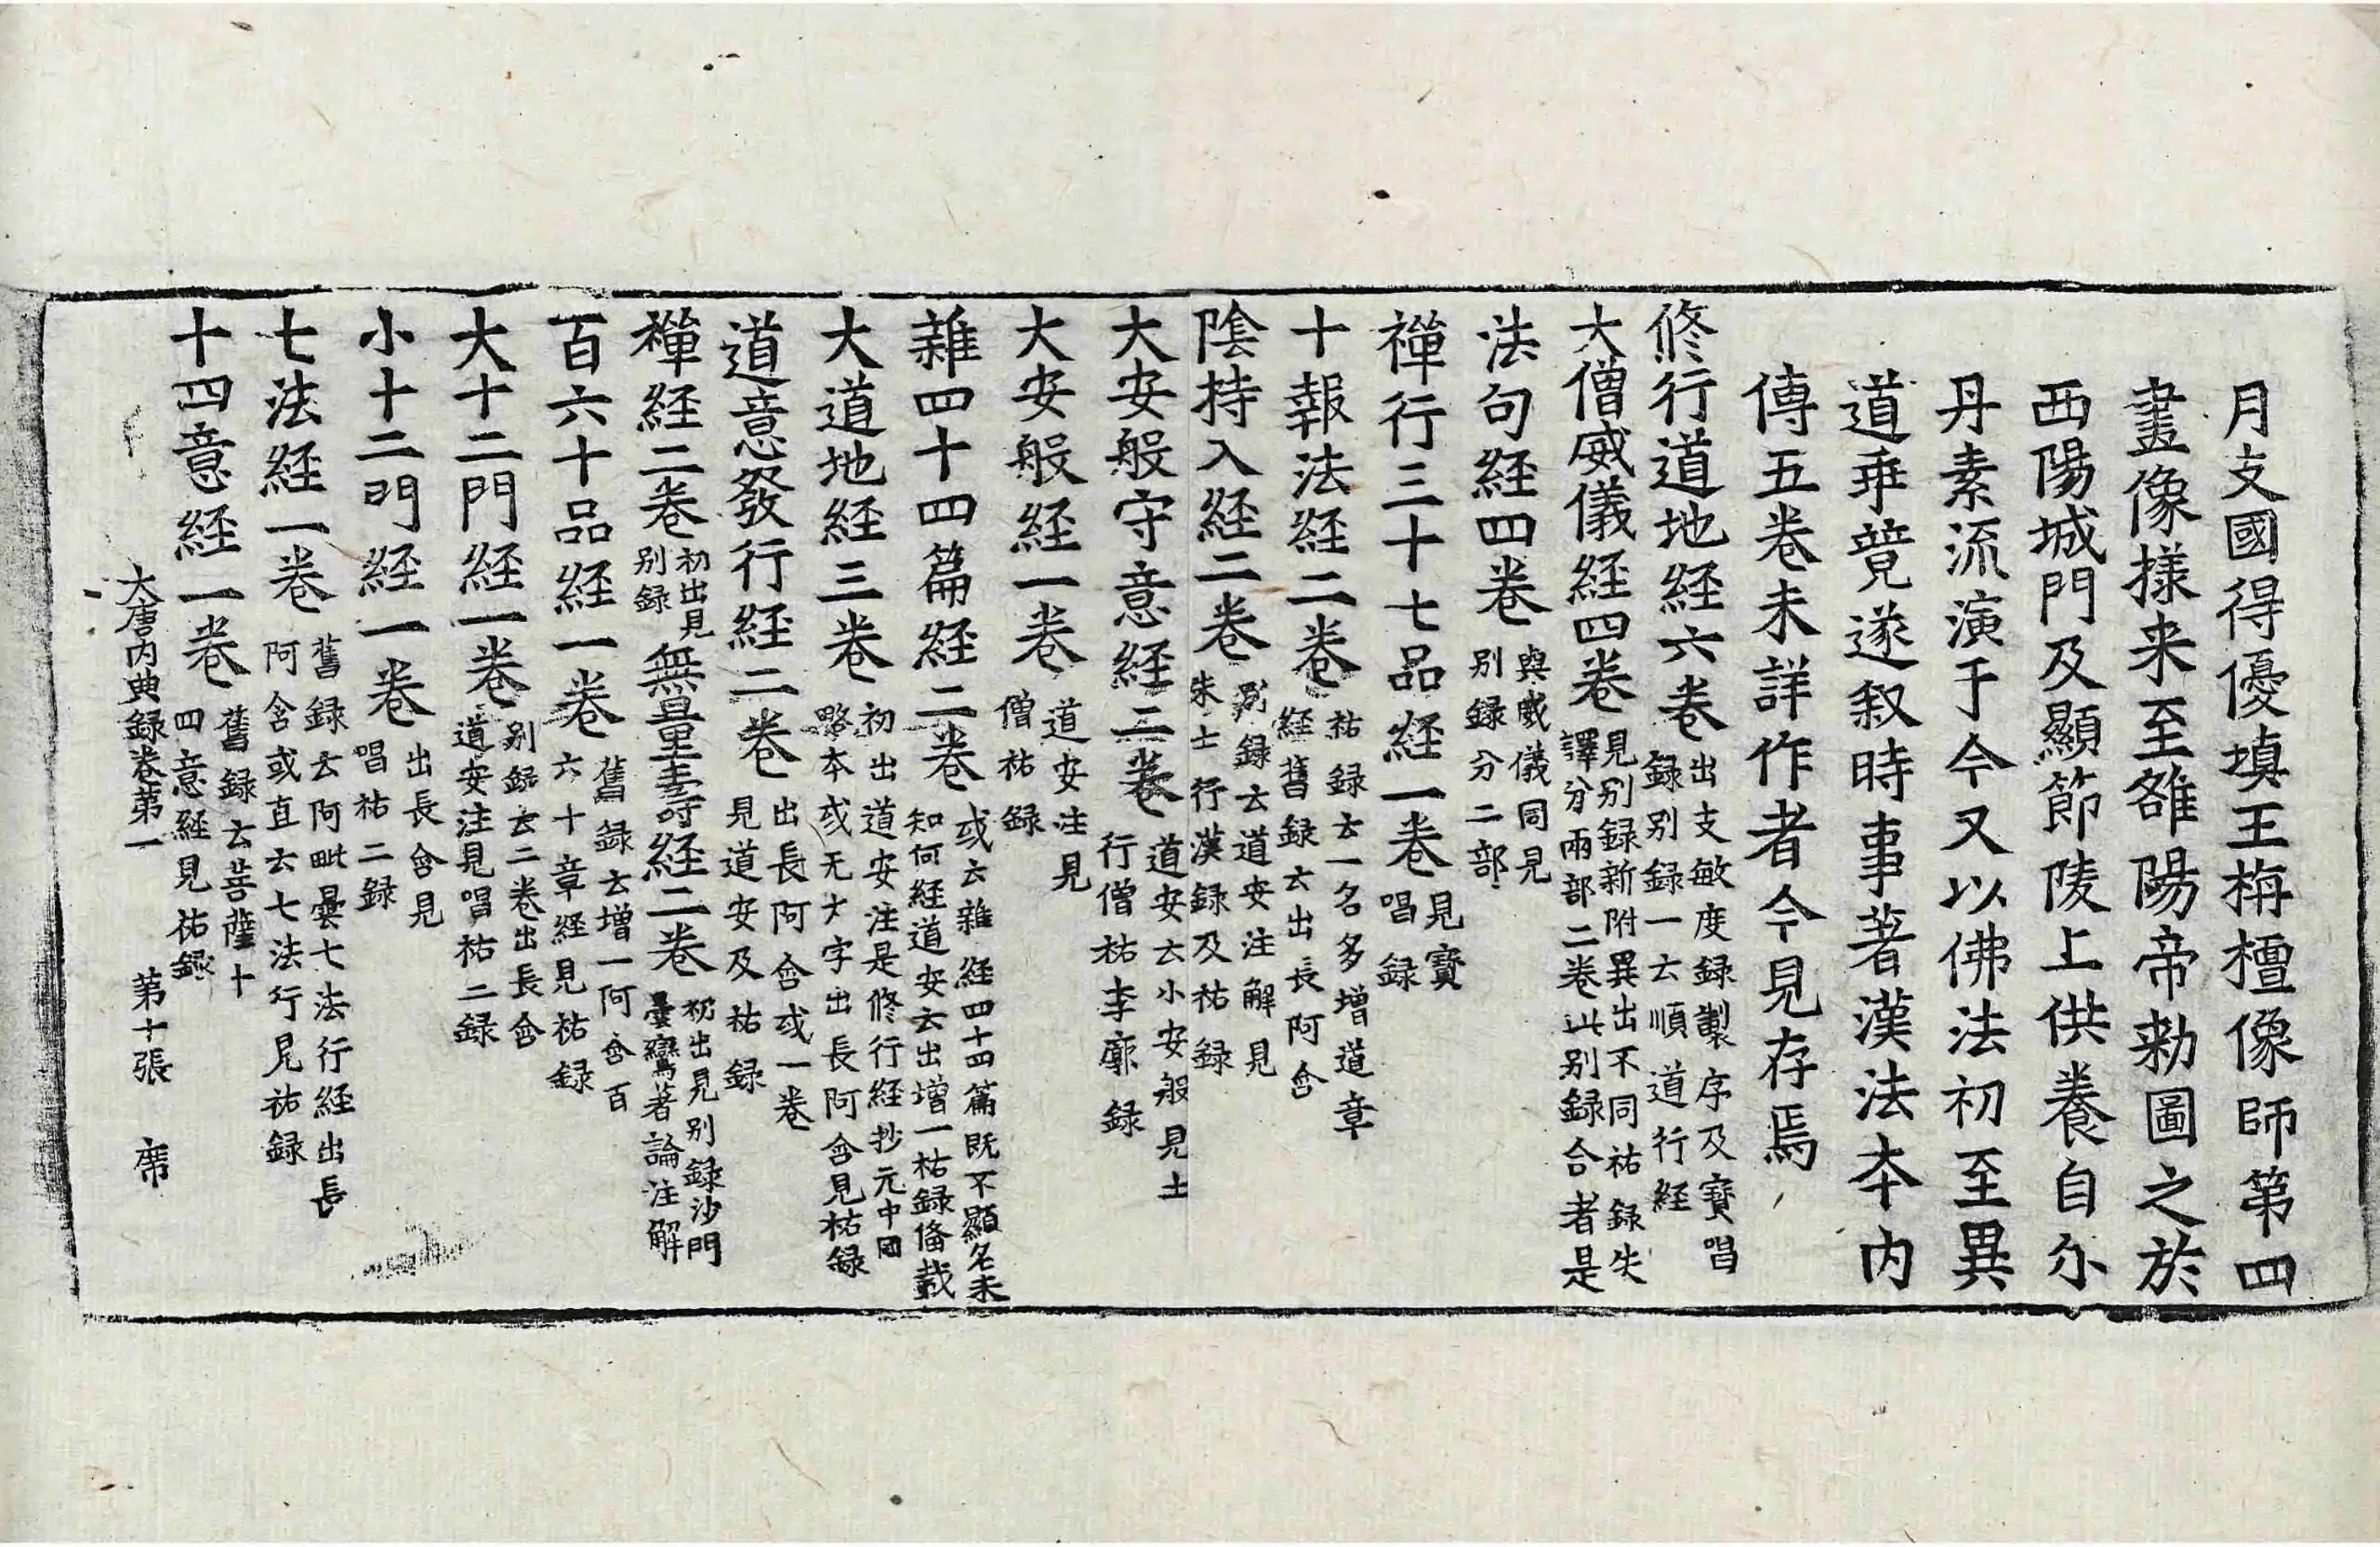 月支國得優填王栴檀像師第四
畫像樣来至雒陽帝勑圖之於
西陽城門及顯節陵上供養自尒
丹素流演于今又以佛法初至異
道乖競遂叙時事著漢法本內
傳五卷未詳作者今見存焉
修行道地経六卷
出支敏度録製序及寶唱
録别録一云順道行経
大僧威儀経四卷
見别録新附異出不同祐録失
譯分兩部二卷此别録合者是
法句経四卷
與威儀同見
别録分二部
禪行三十七品経一卷
見寶
唱録
十報法経二卷
祐録云一名多増道章
経舊録云出長阿含
陰持入経二卷
别録云道安注解見
朱士行漢録及祐録
大安般守意経二卷
道安云小安般見士
行僧祐李廓録
大安般経一卷
道安注見
僧祐録
雜四十四篇経二卷
或云雜経四十四篇既不顯名未
知何経道安云出増一祐録俻載
大道地経三卷
初出道安注是修行経抄元中國
略夲或无大字出長阿含見祐録
道意發行経二卷
出長阿含或一卷
見道安及祐録
禪経二卷
初出見
别録
無量壽経二卷
初出見别録沙門
曇鸞著論注解
百六十品経一卷
舊録云増一阿含百
六十章経見祐録
大十二門経一卷
别録云二卷出長含
道安注見唱祐二録
小十二門経一卷
出長含見
唱祐二録
七法経一卷
舊録云阿毗曇七法行経出長
阿含或直云七法行見祐録
十四意経一卷
舊録云菩薩十
四意経見祐録
大唐内典録卷第一 第十張 席